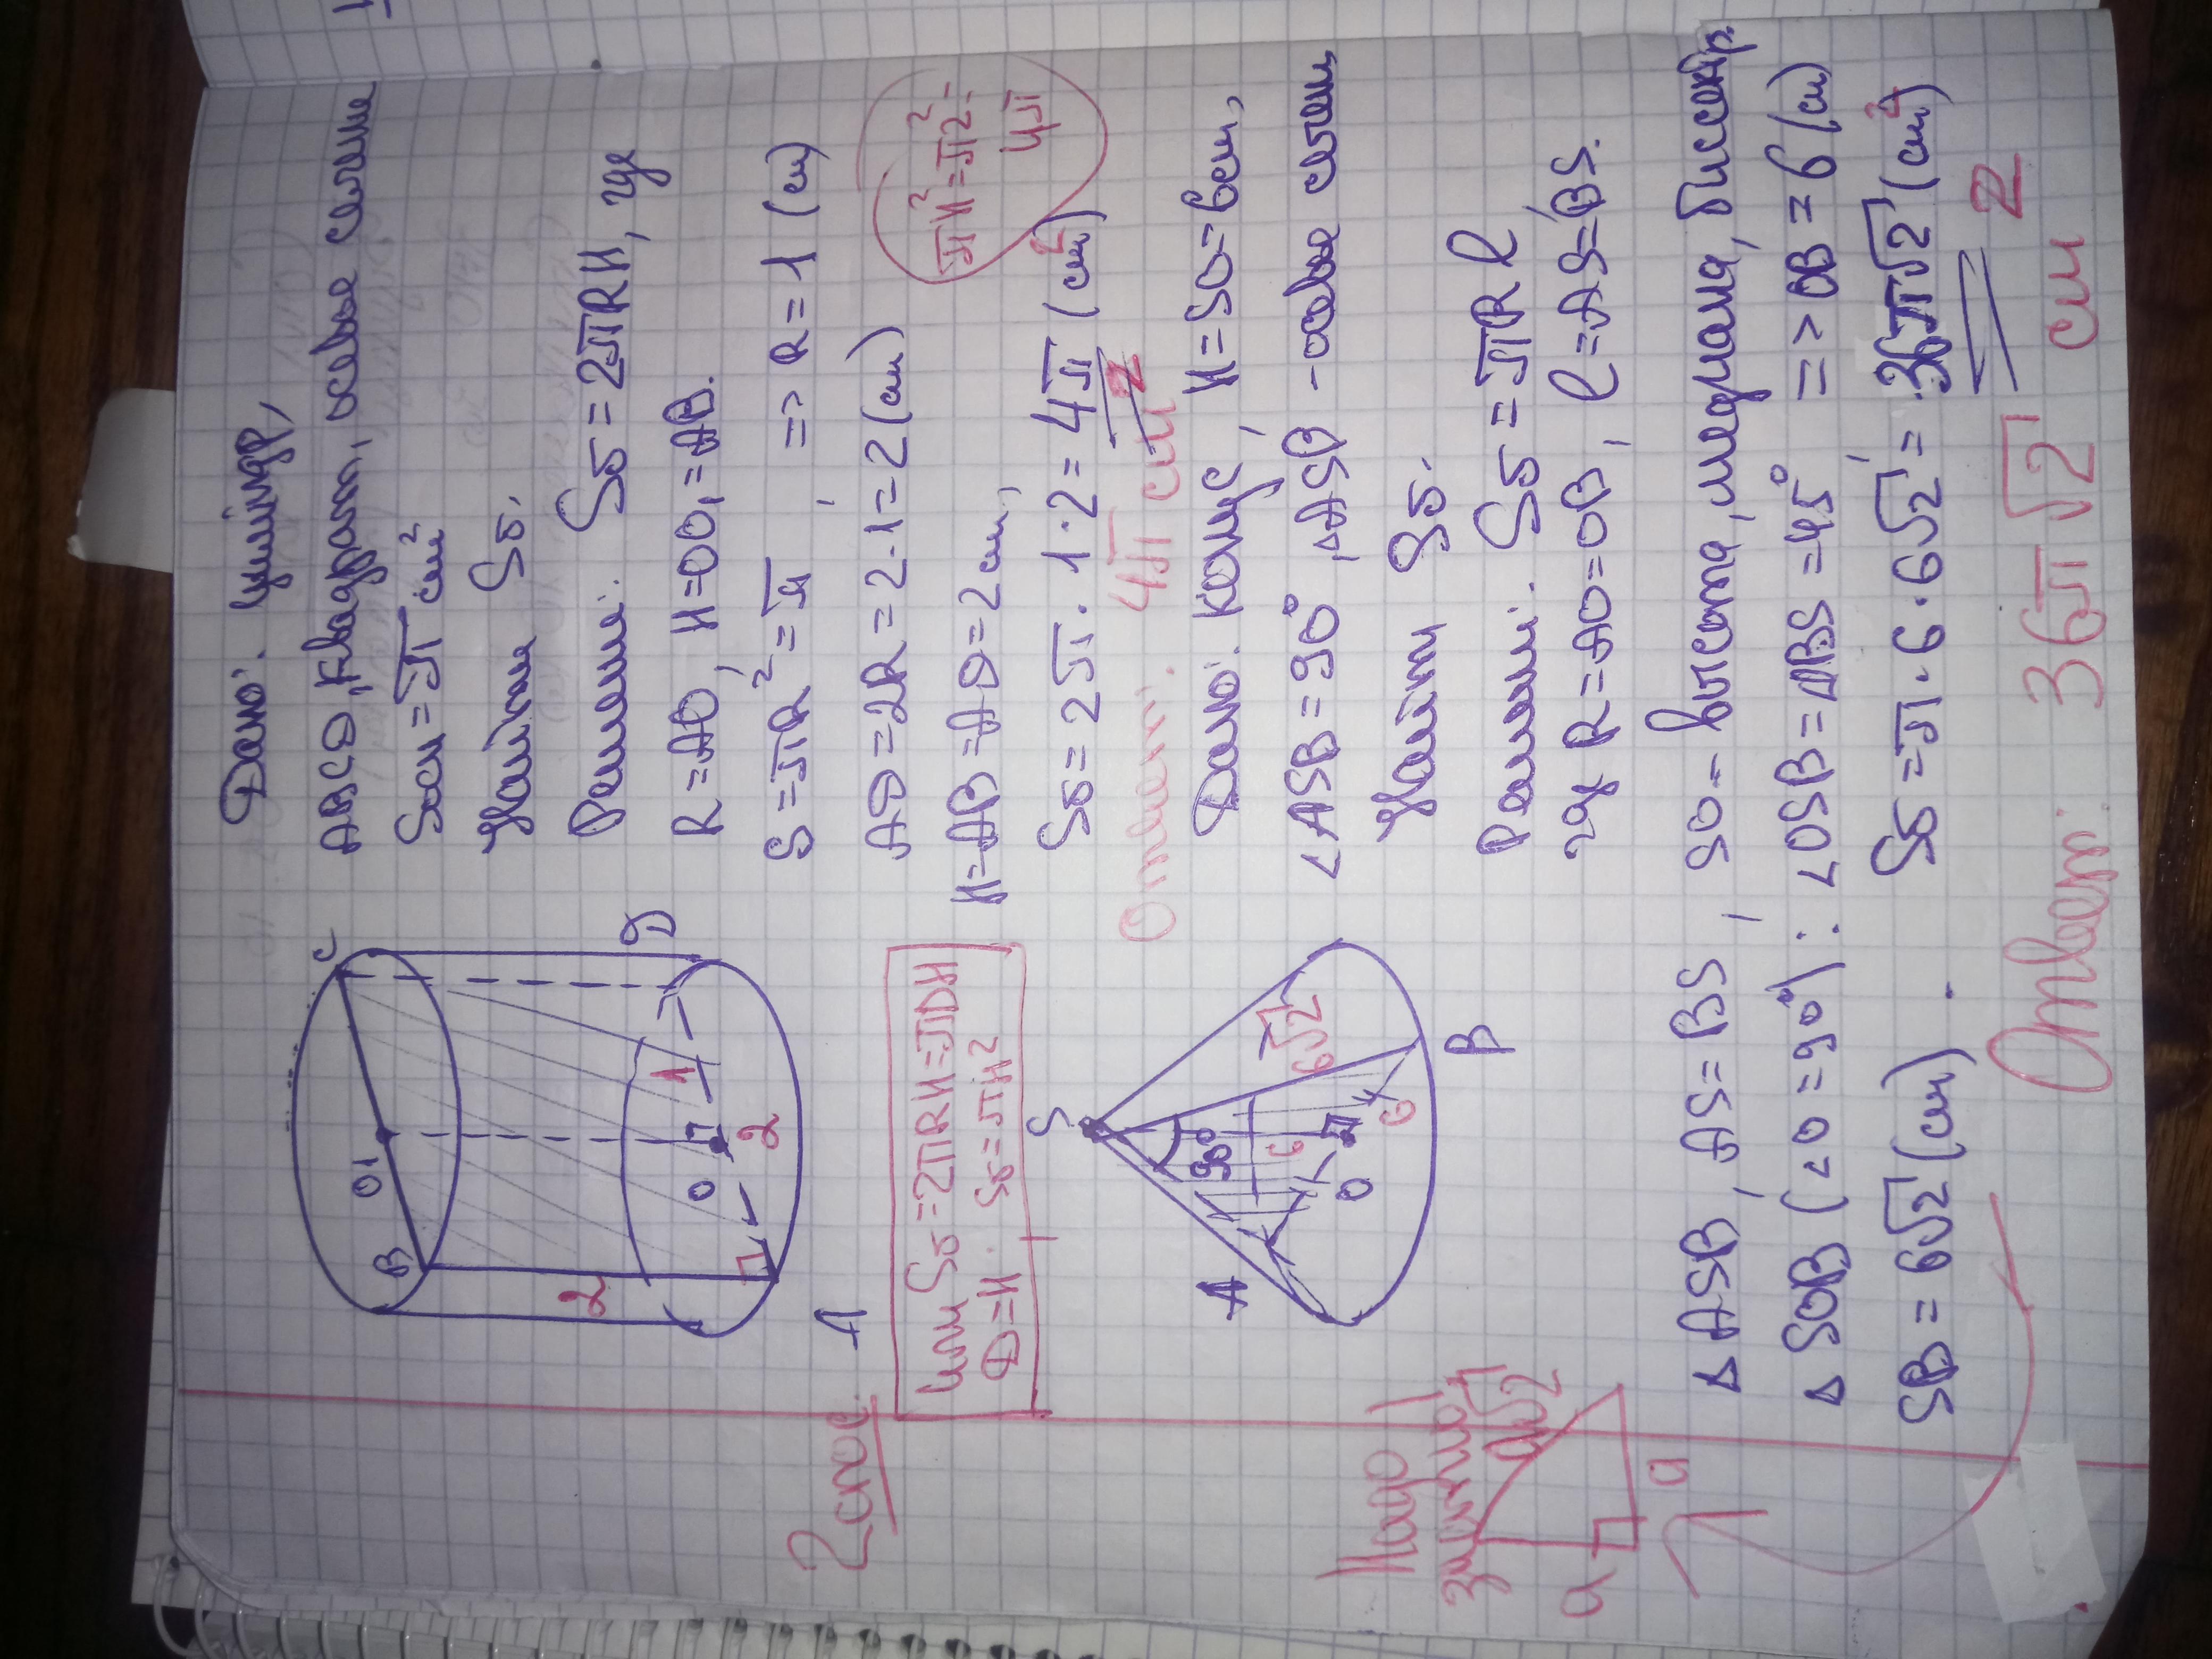 Дано: цилиндр,
ABCD, квадрат, осевое сечение
Sосн = π см²
Найти Sб.
Решение: Sб = 2πRH, где
R = AO, H = OO₁ = AB.
S = πR² = π, => R = 1 (см)
AD = 2R = 2·1 = 2 (см)
H = AB = AD = 2 см,
Sб = 2π·1·2 = 4π (см²)
πH² = π2² =
4π
Ответ: 4π см²
C
O1
B
D
2
1
O
2
A
2 спос.
Или Sб = 2πRH = πDH
D = H. Sб = πH²
Дано: конус, H = SO = 6см,
<ASB = 90°, ΔASB - осевое сечен
Найти Sб.
Решение: Sб = πRl
где R = AO = OB, l = AS = BS.
S
90°
6√2
6
6
A
O
B
Надо
знать!
a√2
a
a
Δ ASB, AS = BS, SO - высота, медиана, биссектр.
Δ SOB (<O = 90°): <OSB = <OBS = 45° => OB = 6 (см)
SB = 6√2 (см). Sб = π·6·6√2 = 36π√2 (см²)
Ответ: 36π√2 см²